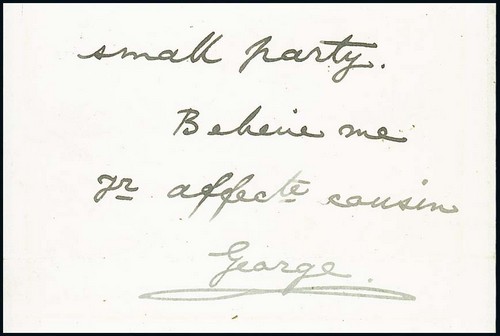 small party.
Believe me
yr affecte cousin
George.